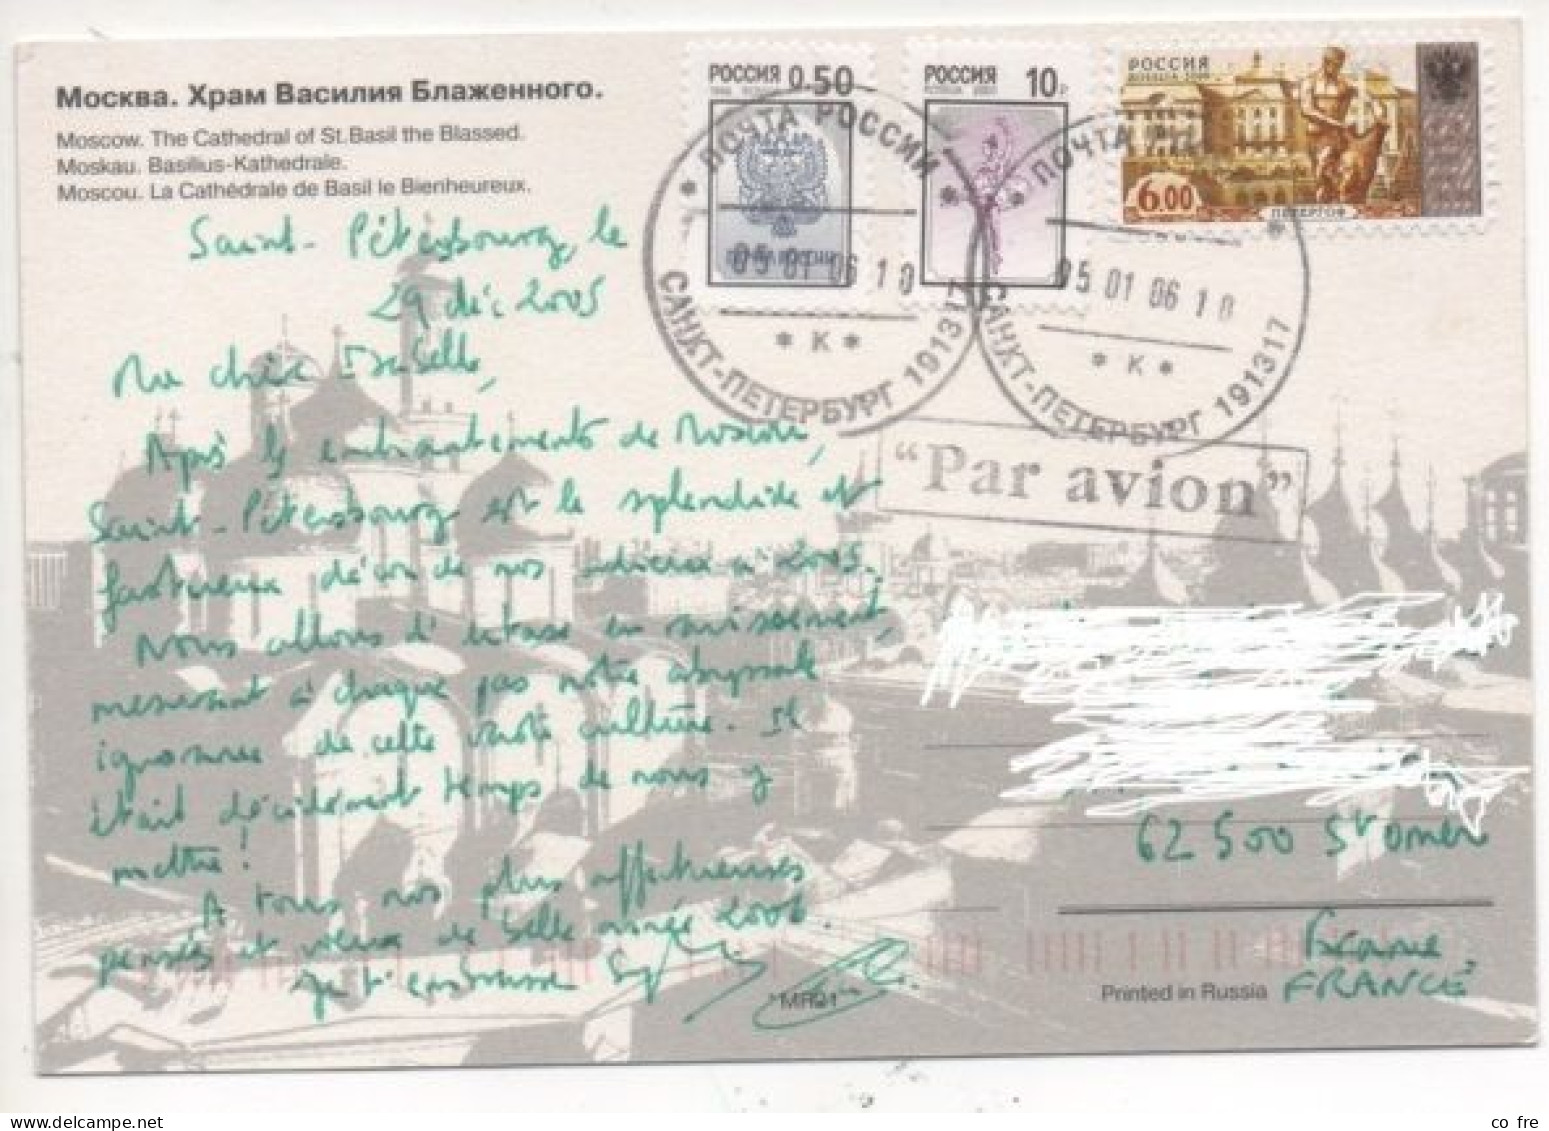 Москва. Храм Василия Блаженного.
Moscow. The Cathedral of St.Basil the Blassed.
Moskau. Basilius-Kathedrale.
Moscou. La Cathédrale de Basil le Bienheureux.
РОССИЯ 0.50
РОССИЯ 10 р
РОССИЯ
6.00
ПЕТЕРГОФ
ПОЧТА РОССИИ
05 01 06 10
* К *
САНКТ-ПЕТЕРБУРГ 191317
ПОЧТА
05 01 06 10
* К *
САНКТ-ПЕТЕРБУРГ 191317
"Par avion"
Saint-Pétersbourg, le
29 déc 2005
Ma chère Isabelle,
Après les enchantements de Moscou,
Saint-Pétersbourg est le splendide et
fastueux décor de nos adieux à 2005.
Nous allons d'extase en ravissement,
mesurant à chaque pas notre abyssale
ignorance de cette vaste culture. Il
était décidément temps de nous y
mettre!
A tous nos plus affectueuses
pensées et vœux de belle année 2006.
Je t'embrasse
62500 St Omer
France
FRANCE
*MR01
Printed in Russia
co fre